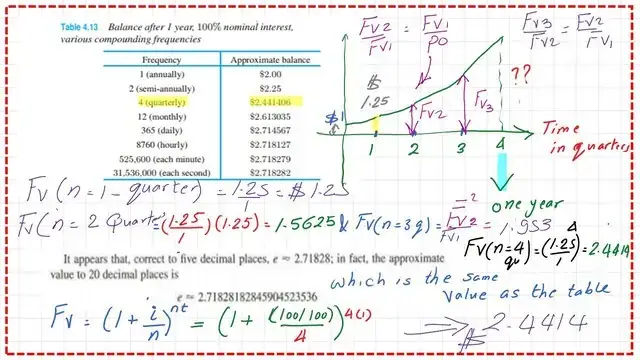 Table 4.13 Balance after 1 year, 100% nominal interest,
various compounding frequencies
Frequency Approximate balance
1 (annually) $2.00
2 (semi-annually) $2.25
4 (quarterly) $2.441406
12 (monthly) $2.613035
365 (daily) $2.714567
8760 (hourly) $2.718127
525,600 (each minute) $2.718279
31,536,000 (each second) $2.718282
FV2/FV1 = FV1/P0
FV3/FV2 = FV2/FV1
$
1.25
$1
FV2
FV3
??
1 2 3 4
Time
in quarters
one year
FV(n=1-quarter) = 1.25/1 = $1.25
FV(n=2 Quarte=(1.25/1)(1.25) = 1.5625 & FV(n=3q) = FV2²/FV1 = 1.953
FV(n=4 qu) = (1.25/1)^4 = 2.4414
It appears that, correct to five decimal places, e ≈ 2.71828; in fact, the approximate
value to 20 decimal places is
e ≈ 2.71828182845904523536
which is the same
value as the table
FV = (1 + i/n)^nt = (1 + (100/100)/4)^4(1)
⇒ $ 2.4414